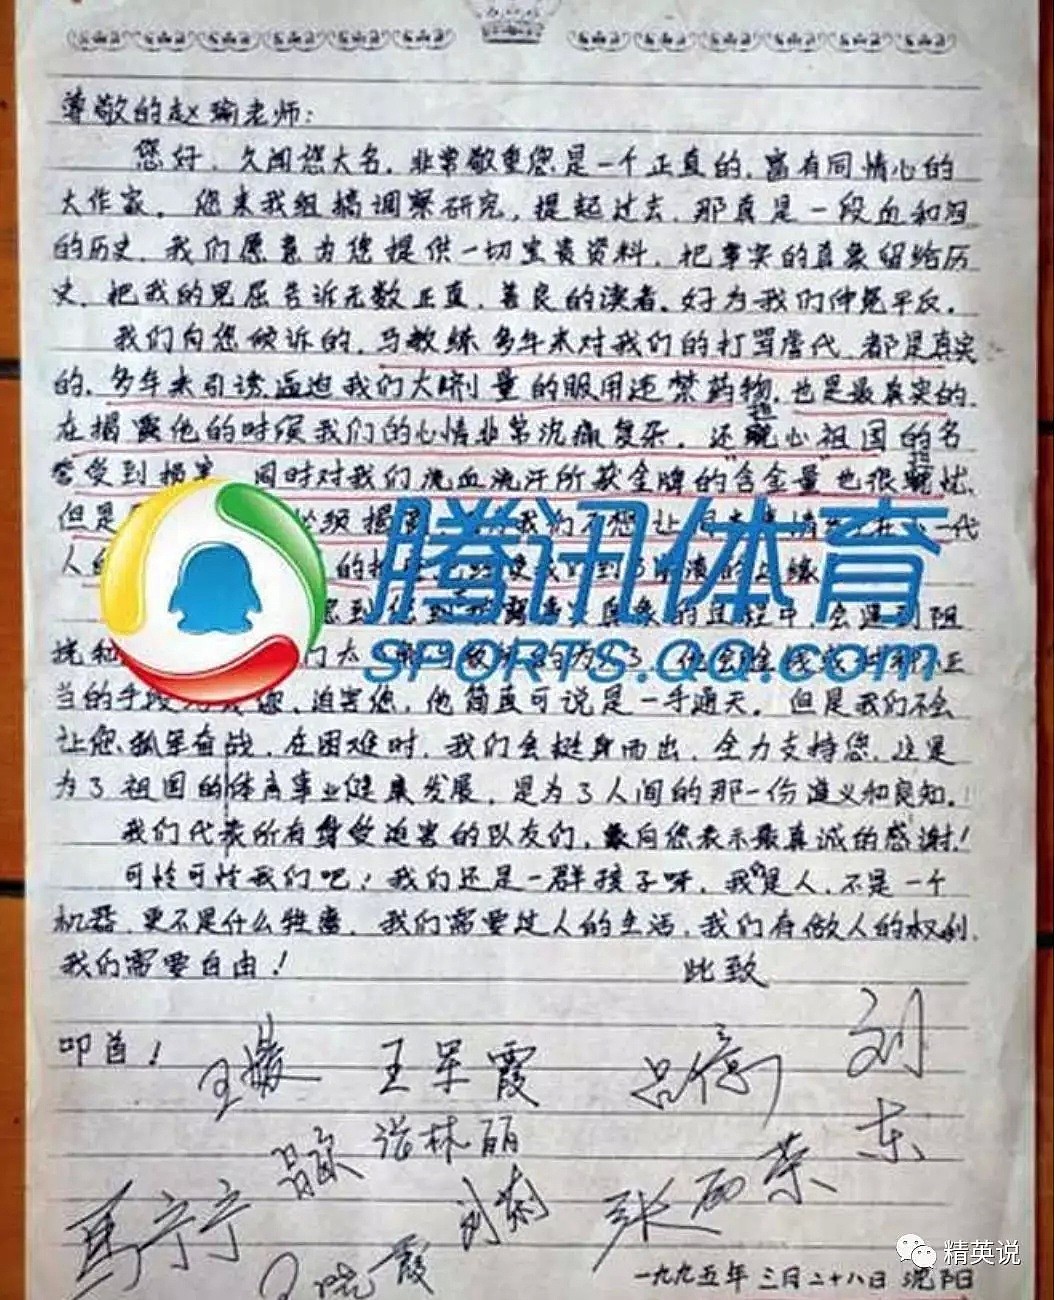 尊敬的赵瑜老师:
您好,久闻您大名,非常敬重您是一个正真的,富有同情心的
大作家。您来我组搞调察研究,提起过去,那真是一段血和泪
的历史,我们愿意为您提供一切宝贵资料,把事实的真象留给历
史,把我的冤屈告诉无数正真、善良的读者。好为我们伸冤平反。
我们向您倾诉的,马教练多年来对我们的打骂虐代,都是真实
的。多年来引诱逼迫我们大剂量的服用违禁药物,也是最真实的。
在揭露他的时候我们的心情非常沉痛复杂,还担心祖国的名
誉受到损害,同时对我们流血流汗所获金牌的“含金量”也很担忧,
但是 必须揭 我们不想让 一代
人的 的
真象的过程中,会遇到阻
挠和
当的手段 您,迫害您,他简直可说是一手通天。但是我们不会
让您孤军奋战,在困难时,我们会挺身而出,全力支持您,这是
为了祖国的体育事业健康发展,是为了人间的那一份道义和良知。!
我们代表所有身受迫害的队友们,向您表示最真诚的感谢!
可怜可怜我们吧!我们还是一群孩子呀,我们是人,不是一个
机器,更不是什么牲畜,我们需要过人的生活,我们有做人的权利,
我们需要自由!
此致
叩首!
王媛 王军霞 吕亿 刘
东
吕欧 张林丽
马宁宁 刘莉 张丽荣
王晓霞
一九九五年三月二十八日 沈阳
腾讯体育
SPORTS.QQ.com
精英说